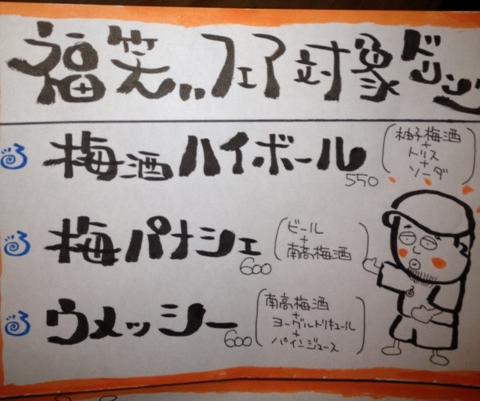 福笑いフェア対象ドリンク
梅酒ハイボール
550
(柚子梅酒
+
トリス
+
ソーダ)
梅パナシェ
600
(ビール
+
南高梅酒)
ウメッシー
600
(南高梅酒
+
ヨーグルトリキュール
+
パインジュース)